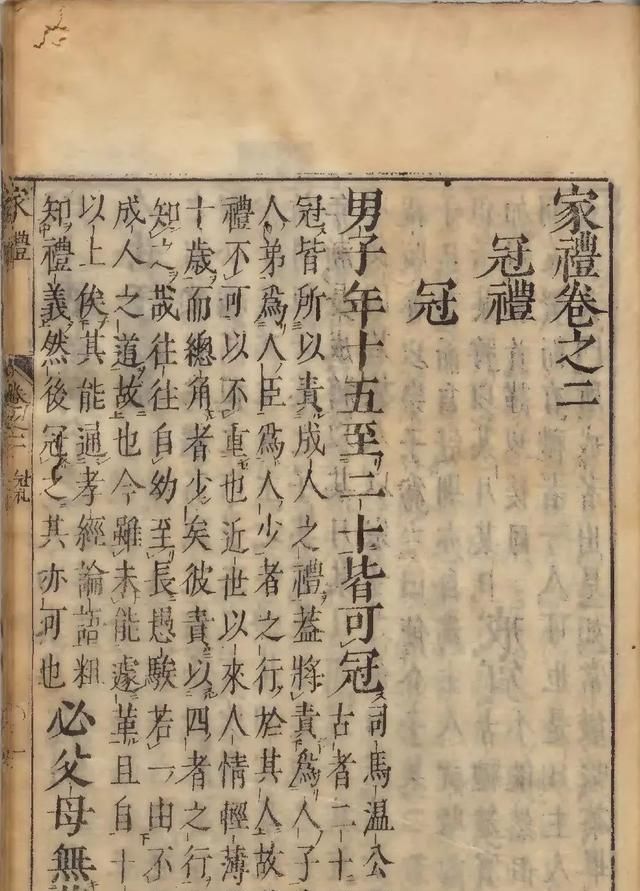 家禮卷之二
冠禮
冠
男子年十五至二十皆可冠
司馬溫公
古者二十
冠皆所以責成人之禮蓋將責爲人子
人弟爲人臣爲人少者之行於其人故
禮不可以不重也近世以來人情輕薄
十歲而總角者少矣彼責以四者之行
知之哉往往自幼至長愚騃若一由不
成人之道故也今雖未能遽革且自十
以上俟其能通孝經論語粗
知禮義然後冠之其亦可也
必父母無
家禮
卷之二